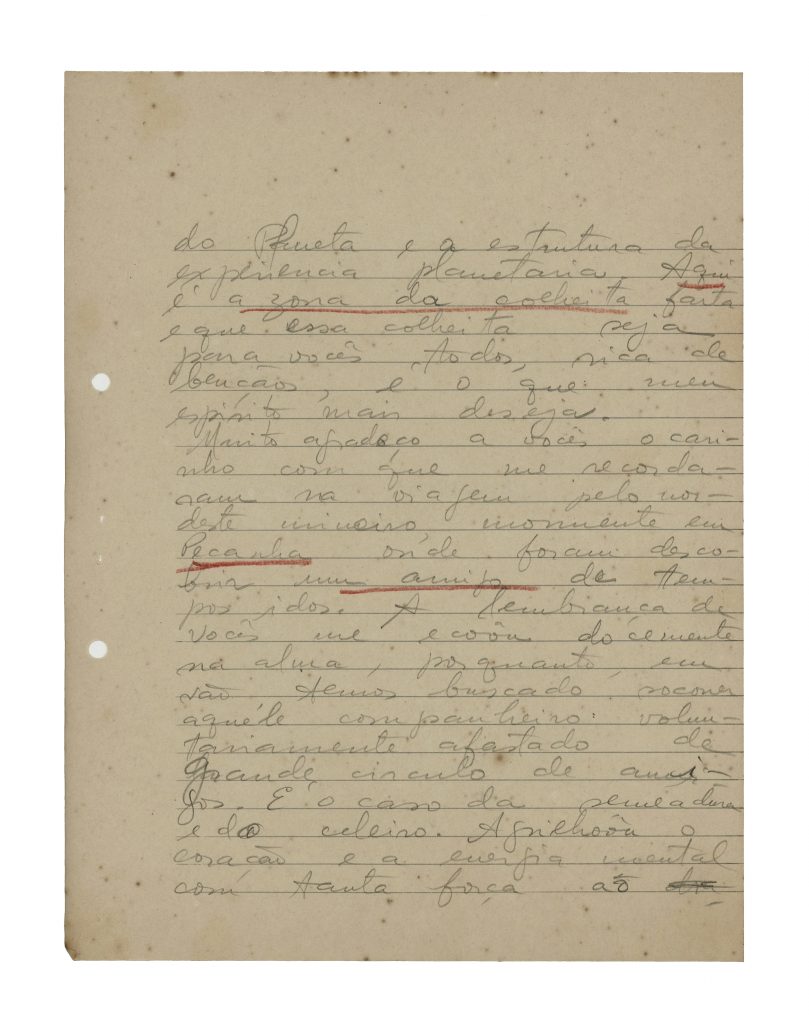 do Planeta e a estrutura da
experiencia planetaria. Aqui
é a zona da colheita farta
e que essa colheita seja
para vocês todos, rica de
bençãos, é o que meu
espírito mais deseja.
Muito agradeço a vocês o cari-
nho com que me recorda-
ram na viagem pelo nor-
deste mineiro, mormente em
Peçanha onde foram desco-
brir um amigo de tem-
pos idos. A lembrança de
vocês me ecoôu docemente
na alma, porquanto, em
vão temos buscado socorrer
aquéle companheiro volun-
tariamente afastado de
grande circulo de ami-
gos. É o caso da semeadura
e do celeiro. Agrilhoôu o
coração e a energia mental
com tanta força ao